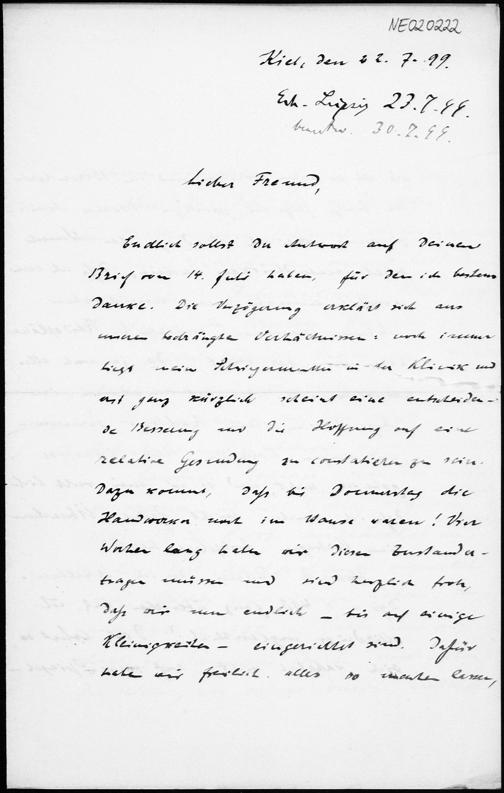 NE020222
Kiel, den 22. 7. 99.
Erh. Leipzig 23.7.99.
beantw. 30.7.99.
Lieber Freund,
Endlich sollst Du Antwort auf Deinen
Brief vom 14. Juli haben, für den ich bestens
danke. Die Verzögerung erklärt sich aus
unseren bedrängten Verhältnissen: noch immer
liegt mein Schwiegermama in der Klinik und
erst ganz kürzlich scheint eine entscheiden-
de Besserung und die Hoffnung auf eine
relative Gesundung zu constatieren zu sein.
Dazu kommt, daß bis Donnerstag die
Handwerker noch im Hause waren! Vier
Wochen lang haben wir diesen Zustand er-
tragen müssen und sind herzlich froh,
daß wir nun endlich – bis auf einige
Kleinigkeiten – eingerichtet sind. Dafür
haben wir freilich alles so machen lassen,